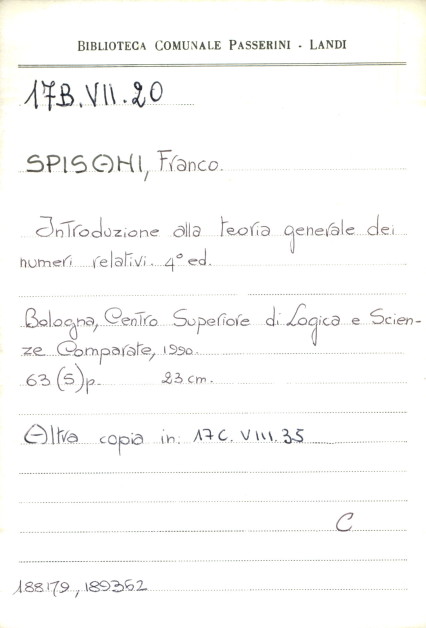 BIBLIOTECA COMUNALE PASSERINI - LANDI
17B.VII.20
SPISANI, Franco.
Introduzione alla teoria generale dei
numeri relativi. 4° ed.
Bologna, Centro Superiore di Logica e Scien-
ze Comparate, 1990.
63 (5) p. 23 cm.
Altra copia in: 17C.VIII.35
C
188179, 189352